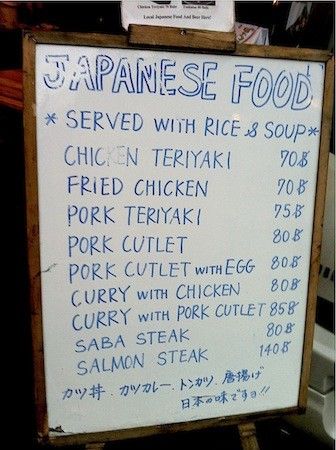 Chicken Teriyaki 70 Baht
Local Japanese Food And Beer Here!
JAPANESE FOOD
* SERVED WITH RICE & SOUP *
CHICKEN TERIYAKI 70฿
FRIED CHICKEN 70฿
PORK TERIYAKI 75฿
PORK CUTLET 80฿
PORK CUTLET WITH EGG 80฿
CURRY WITH CHICKEN 80฿
CURRY WITH PORK CUTLET 85฿
SABA STEAK 80฿
SALMON STEAK 140฿
カツ丼.カツカレー.トンカツ.唐揚げ
日本の味ですョ!!